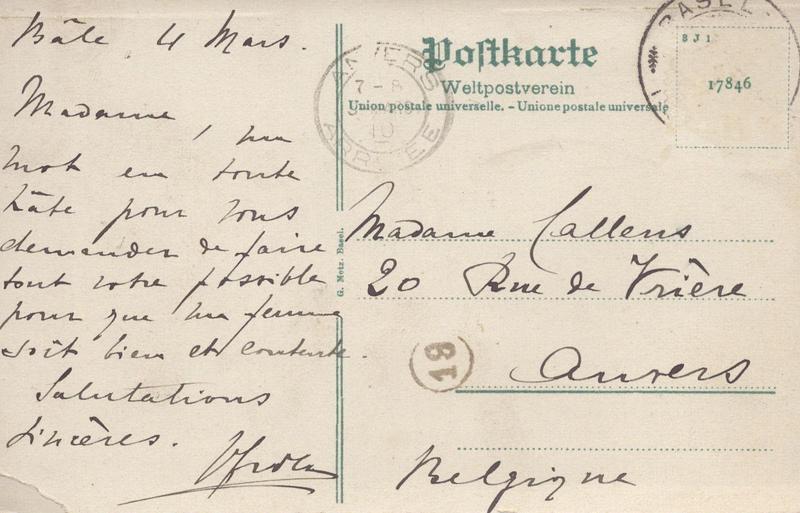 Bâle 4 Mars.
Madame, un
mot en toute
hâte pour vous
demander de faire
tout votre possible
pour que ma femme
soit bien et contente.
Salutations
sincères.
Postkarte
Weltpostverein
Union postale universelle. – Unione postale universale
BASEL
BJ1
17846
ANVERS
7 – 8
10
ARRIVÉE
G. Metz, Basel.
Madame Callens
20 Rue de Vrière
Anvers
Belgique
19